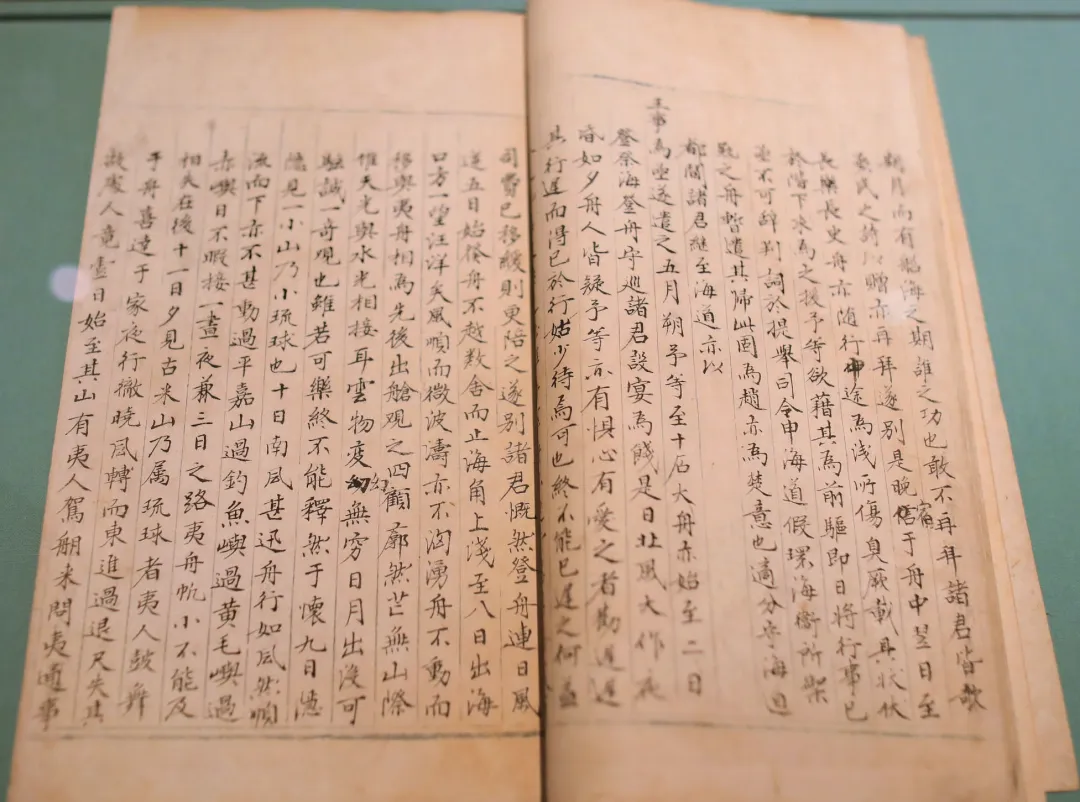 期月而有航海之期誰之功也敢不再拜諸君皆歌
烝民之詩以贈亦再拜遂別是晚宿于舟中翌日至
長樂長史舟亦随行中途為浅所傷臭厥載具狀伏
於階下求為之援予等欲藉其為前驅即日將行事已
亟不可辞判詞於提舉司令申海道假環海衛所架
戰之舟暫遣其歸此固為趙亦為楚意也適分守海道
都閫諸君継至海道亦以
王事為亟遂遣之五月朔予等至十石大舟亦始至二日
祭海登舟守巡諸君設宴為餞是日北風大作
昏如夕舟人皆疑予等亦有惧心有愛之者勸遅遅
其行遅而得已於行姑少待焉可也終不能已遅之何益
司費已移緩則更陪之遂别諸君慨然登舟連日風
逆五日始發舟不越数舍而止海角上浅至八日出海
口方一望汪洋矣風順而微波濤亦不洶湧舟不動而
移與夷舟相為先後出艙觀之四顧廓然茫無山際
惟天光與水光相接耳雲物変幻無窮日月出沒可
駭誠一奇观也雖若可樂終不能釋然于懷九日隱
隱見一小山乃小琉球也十日南风甚迅舟行如风然順
流而下亦不甚動過平嘉山過釣魚嶼過黄毛嶼過
赤嶼目不暇接一晝夜兼三日之路夷舟帆小不能及
相失在後十一日夕見古米山乃属琉球者夷人鼓舞
于舟喜達于家夜行徹曉风轉而東進過退尺失其
故處人竟壹日始至其山有夷人駕舡来問夷通事